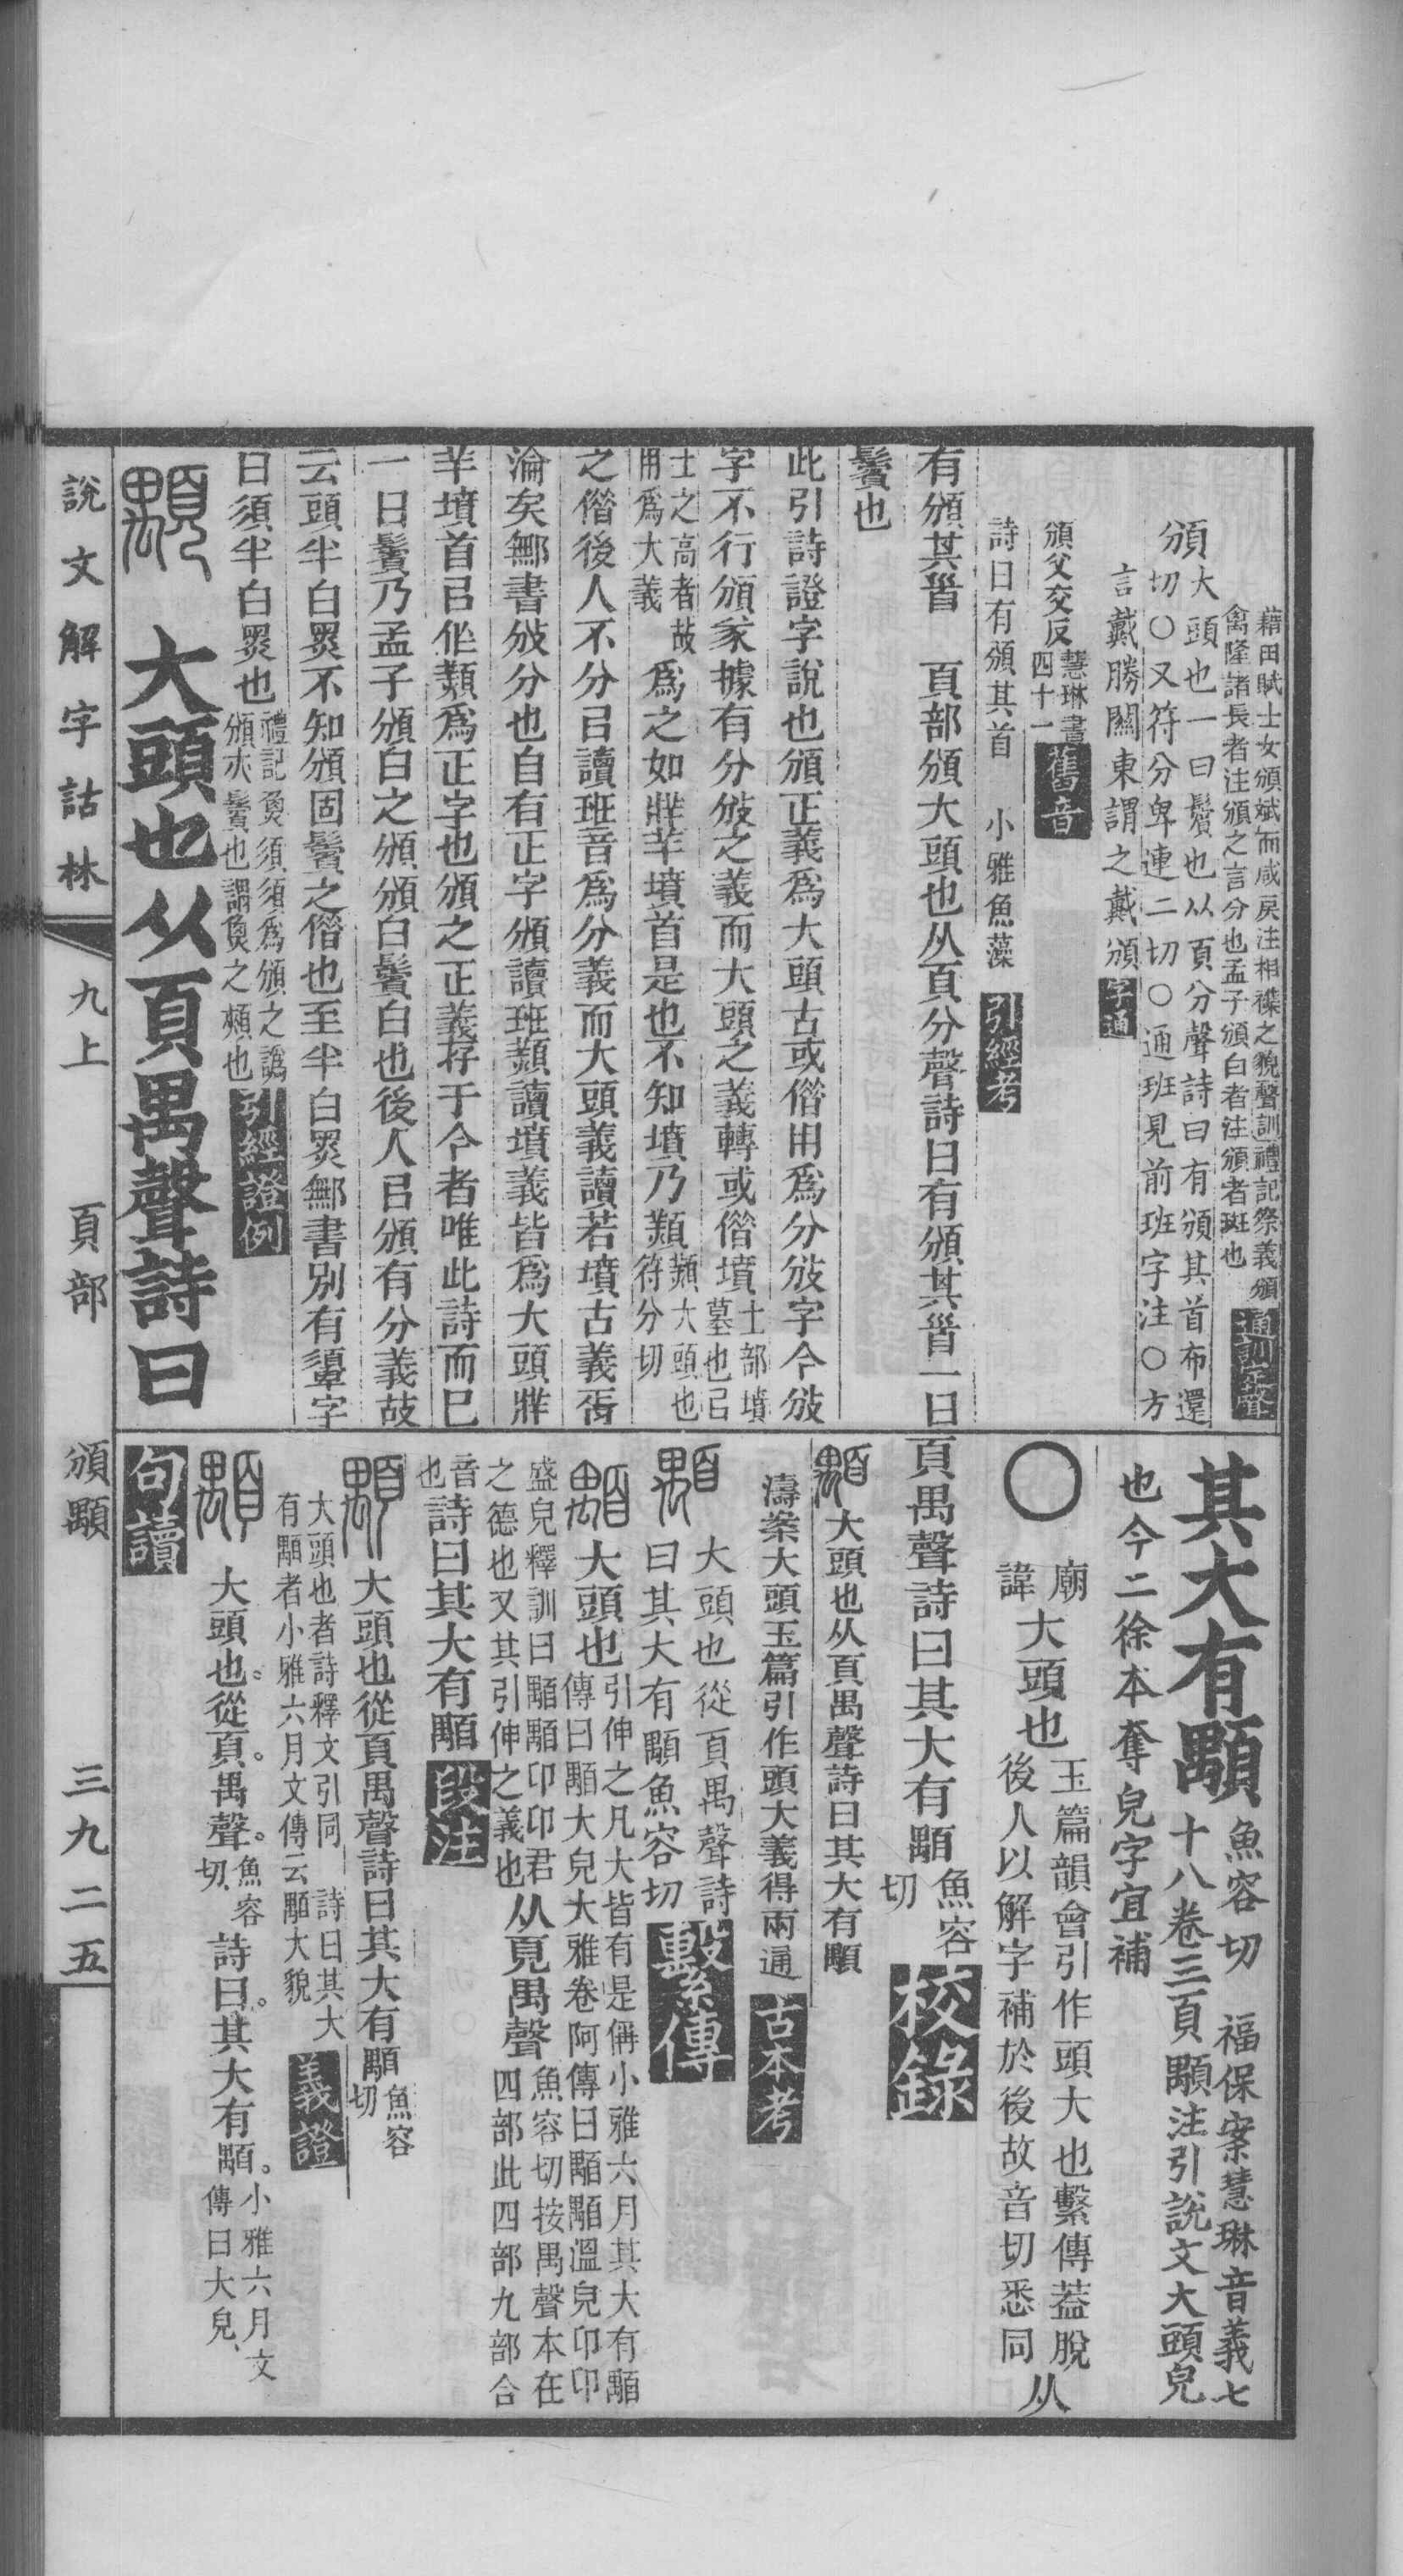 藉田賦士女頒斌而咸戾注相襍之貌聲訓禮記祭義頒
禽隆諸長者注頒之言分也孟子頒白者注頒者斑也
通訓定聲
頒
大頭也一曰鬢也从頁分聲詩曰有頒其首布還
切〇又符分卑連二切〇通班見前班字注〇方
言戴勝關東謂之戴頒
字通
頒父交反
慧琳書
四十一
舊音
詩曰有頒其首　小雅魚藻
引經考
有頒其𩠐　頁部頒大頭也从頁分聲詩曰有頒其𩠐一曰
鬢也
此引詩證字說也頒正義爲大頭古或僭用爲分攽字今攽
字不行頒家據有分攽之義而大頭之義轉或僭墳
土部墳
墓也㠯
土之高者故
用爲大義
爲之如牂羊墳首是也不知墳乃䫞
䫞大頭也
符分切
之僭後人不分㠯讀班音爲分義而大頭義讀若墳古義胥
淪矣鄦書攽分也自有正字頒讀班䫞讀墳義皆爲大頭牂
羊墳首㠯作䫞爲正字也頒之正義存于今者唯此詩而已
一曰鬢乃孟子頒白之頒頒白鬢白也後人㠯頒有分義故
云頭半白𦊱不知頒固鬢之僭也至半白𦊱鄦書別有辬字
曰須半白𦊱也
引經證例
大頭也从頁禺聲詩曰
其大有顒
魚容切　福保案慧琳音義七
十八卷三頁顒注引說文大頭皃
也今二徐本奪皃字宜補
〇
廟
諱
大頭也
玉篇韻會引作頭大也繫傳葢脫
後人以解字補於後故音切悉同
从
頁禺聲詩曰其大有顒
魚容
切
校錄
顒
大頭也从頁禺聲詩曰其大有顒
濤案大頭玉篇引作頭大義得兩通
古本考
顒
大頭也從頁禺聲詩
曰其大有顒魚容切
繫傳
顒
大頭也
引伸之凡大皆有是偁小雅六月其大有顒
傳曰顒大皃大雅卷阿傳曰顒顒溫皃卬卬
盛皃釋訓曰顒顒卬卬君
之德也又其引伸之義也
从頁禺聲
魚容切按禺聲本在
四部此四部九部合
音
也
詩曰其大有顒
段注
顒
大頭也從頁禺聲詩曰其大有顒
魚容
切
大頭也者詩釋文引同　詩曰其大
有顒者小雅六月文傳云顒大貌
義證
顒
大頭也。從頁。禺聲。
魚容
切、
詩曰。其大有顒。
小雅六月文
傳曰大皃、
句讀
說文解字詁林
九上　頁部
頒顒
三九二五